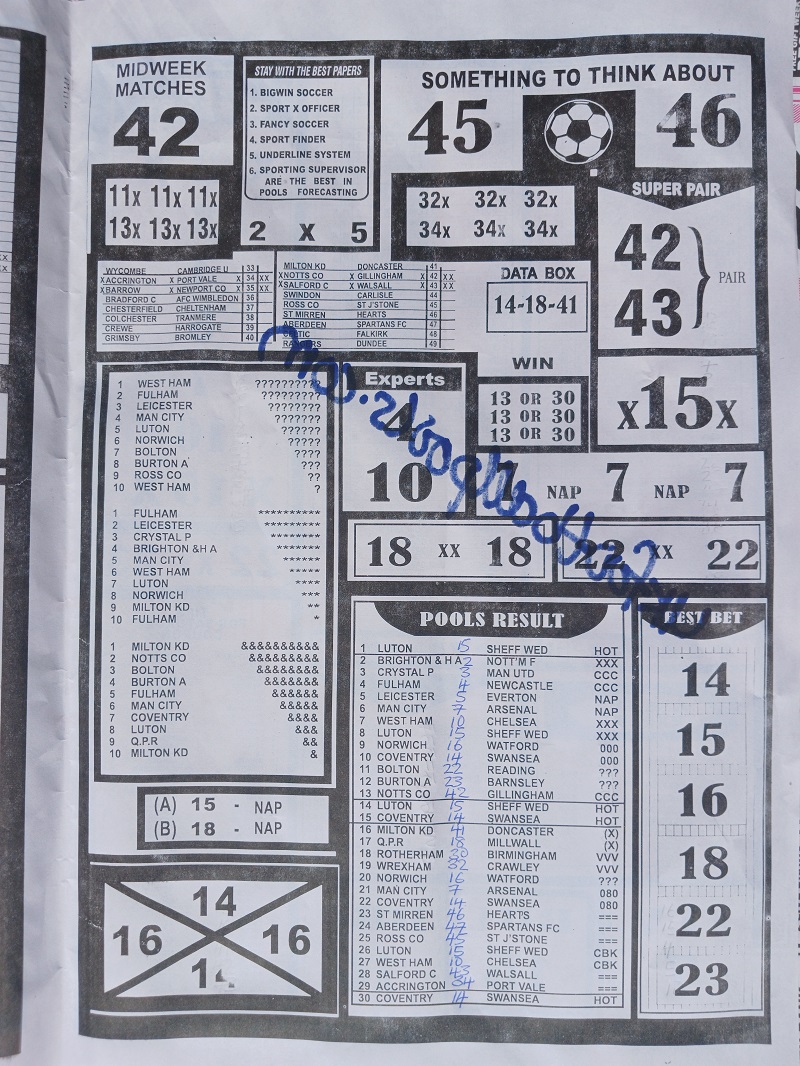 MIDWEEK
MATCHES
42
11x 11x 11x
13x 13x 13x
STAY WITH THE BEST PAPERS
1. BIGWIN SOCCER
2. SPORT X OFFICER
3. FANCY SOCCER
4. SPORT FINDER
5. UNDERLINE SYSTEM
6. SPORTING SUPERVISOR
ARE THE BEST IN
POOLS FORECASTING
2 X 5
SOMETHING TO THINK ABOUT
45 46
32x 32x 32x
34x 34x 34x
SUPER PAIR
42
43
PAIR
WYCOMBE CAMBRIDGE U 33
X ACCRINGTON X PORT VALE X 34 XX
X BARROW X NEWPORT CO X 35 XX
BRADFORD C AFC WIMBLEDON 36
CHESTERFIELD CHELTENHAM 37
COLCHESTER TRANMERE 38
CREWE HARROGATE 39
GRIMSBY BROMLEY 40
MILTON KD DONCASTER 41
X NOTTS CO X GILLINGHAM X 42 XX
X SALFORD C X WALSALL X 43 XX
SWINDON CARLISLE 44
ROSS CO ST J'STONE 45
ST MIRREN HEARTS 46
ABERDEEN SPARTANS FC 47
FALKIRK 48
DUNDEE 49
DATA BOX
14-18-41
WIN
13 OR 30
13 OR 30
13 OR 30
x15x
1 WEST HAM ??????????
2 FULHAM ?????????
3 LEICESTER ????????
4 MAN CITY ???????
5 LUTON ??????
6 NORWICH ?????
7 BOLTON ????
8 BURTON A ???
9 ROSS CO ??
10 WEST HAM ?
1 FULHAM **********
2 LEICESTER *********
3 CRYSTAL P ********
4 BRIGHTON &H A *******
5 MAN CITY ******
6 WEST HAM *****
7 LUTON ****
8 NORWICH ***
9 MILTON KD **
10 FULHAM *
1 MILTON KD &&&&&&&&&&
2 NOTTS CO &&&&&&&&&
3 BOLTON &&&&&&&&
4 BURTON A &&&&&&&
5 FULHAM &&&&&&
6 MAN CITY &&&&&
7 COVENTRY &&&&
8 LUTON &&&
9 Q.P.R &&
10 MILTON KD &
Experts
4
10
7 NAP 7 NAP 7
18 XX 18
22 XX 22
(A) 15 - NAP
(B) 18 - NAP
14
16 16
14
POOLS RESULT
1 LUTON 15 SHEFF WED HOT
2 BRIGHTON & H A 2 NOTT'M F XXX
3 CRYSTAL P 3 MAN UTD CCC
4 FULHAM 4 NEWCASTLE CCC
5 LEICESTER 5 EVERTON NAP
6 MAN CITY 7 ARSENAL NAP
7 WEST HAM 10 CHELSEA XXX
8 LUTON 15 SHEFF WED XXX
9 NORWICH 16 WATFORD 000
10 COVENTRY 14 SWANSEA 000
11 BOLTON 22 READING ???
12 BURTON A 23 BARNSLEY ???
13 NOTTS CO 42 GILLINGHAM CCC
14 LUTON 15 SHEFF WED HOT
15 COVENTRY 14 SWANSEA HOT
16 MILTON KD 41 DONCASTER (X)
17 Q.P.R 18 MILLWALL (X)
18 ROTHERHAM 30 BIRMINGHAM VVV
19 WREXHAM 32 CRAWLEY VVV
20 NORWICH 16 WATFORD ???
21 MAN CITY 7 ARSENAL 080
22 COVENTRY 14 SWANSEA 080
23 ST MIRREN 46 HEARTS ===
24 ABERDEEN 47 SPARTANS FC ===
25 ROSS CO 45 ST J'STONE ===
26 LUTON 15 SHEFF WED CBK
27 WEST HAM 10 CHELSEA CBK
28 SALFORD C 43 WALSALL ===
29 ACCRINGTON 34 PORT VALE ===
30 COVENTRY 14 SWANSEA HOT
BEST BET
14
15
16
18
22
23